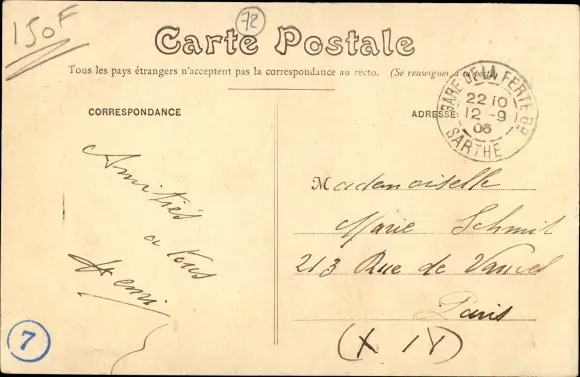 150F
72
Carte Postale
Tous les pays étrangers n'acceptent pas la correspondance au recto. (Se renseigner à la poste)
CORRESPONDANCE
ADRESSE
GARE DE LA FERTE-BD
22 10
12 -9
06
SARTHE
Amitiés
a tous
Henri
Mademoiselle
Marie Schmit
213 Rue de
Paris
(XIV)
7